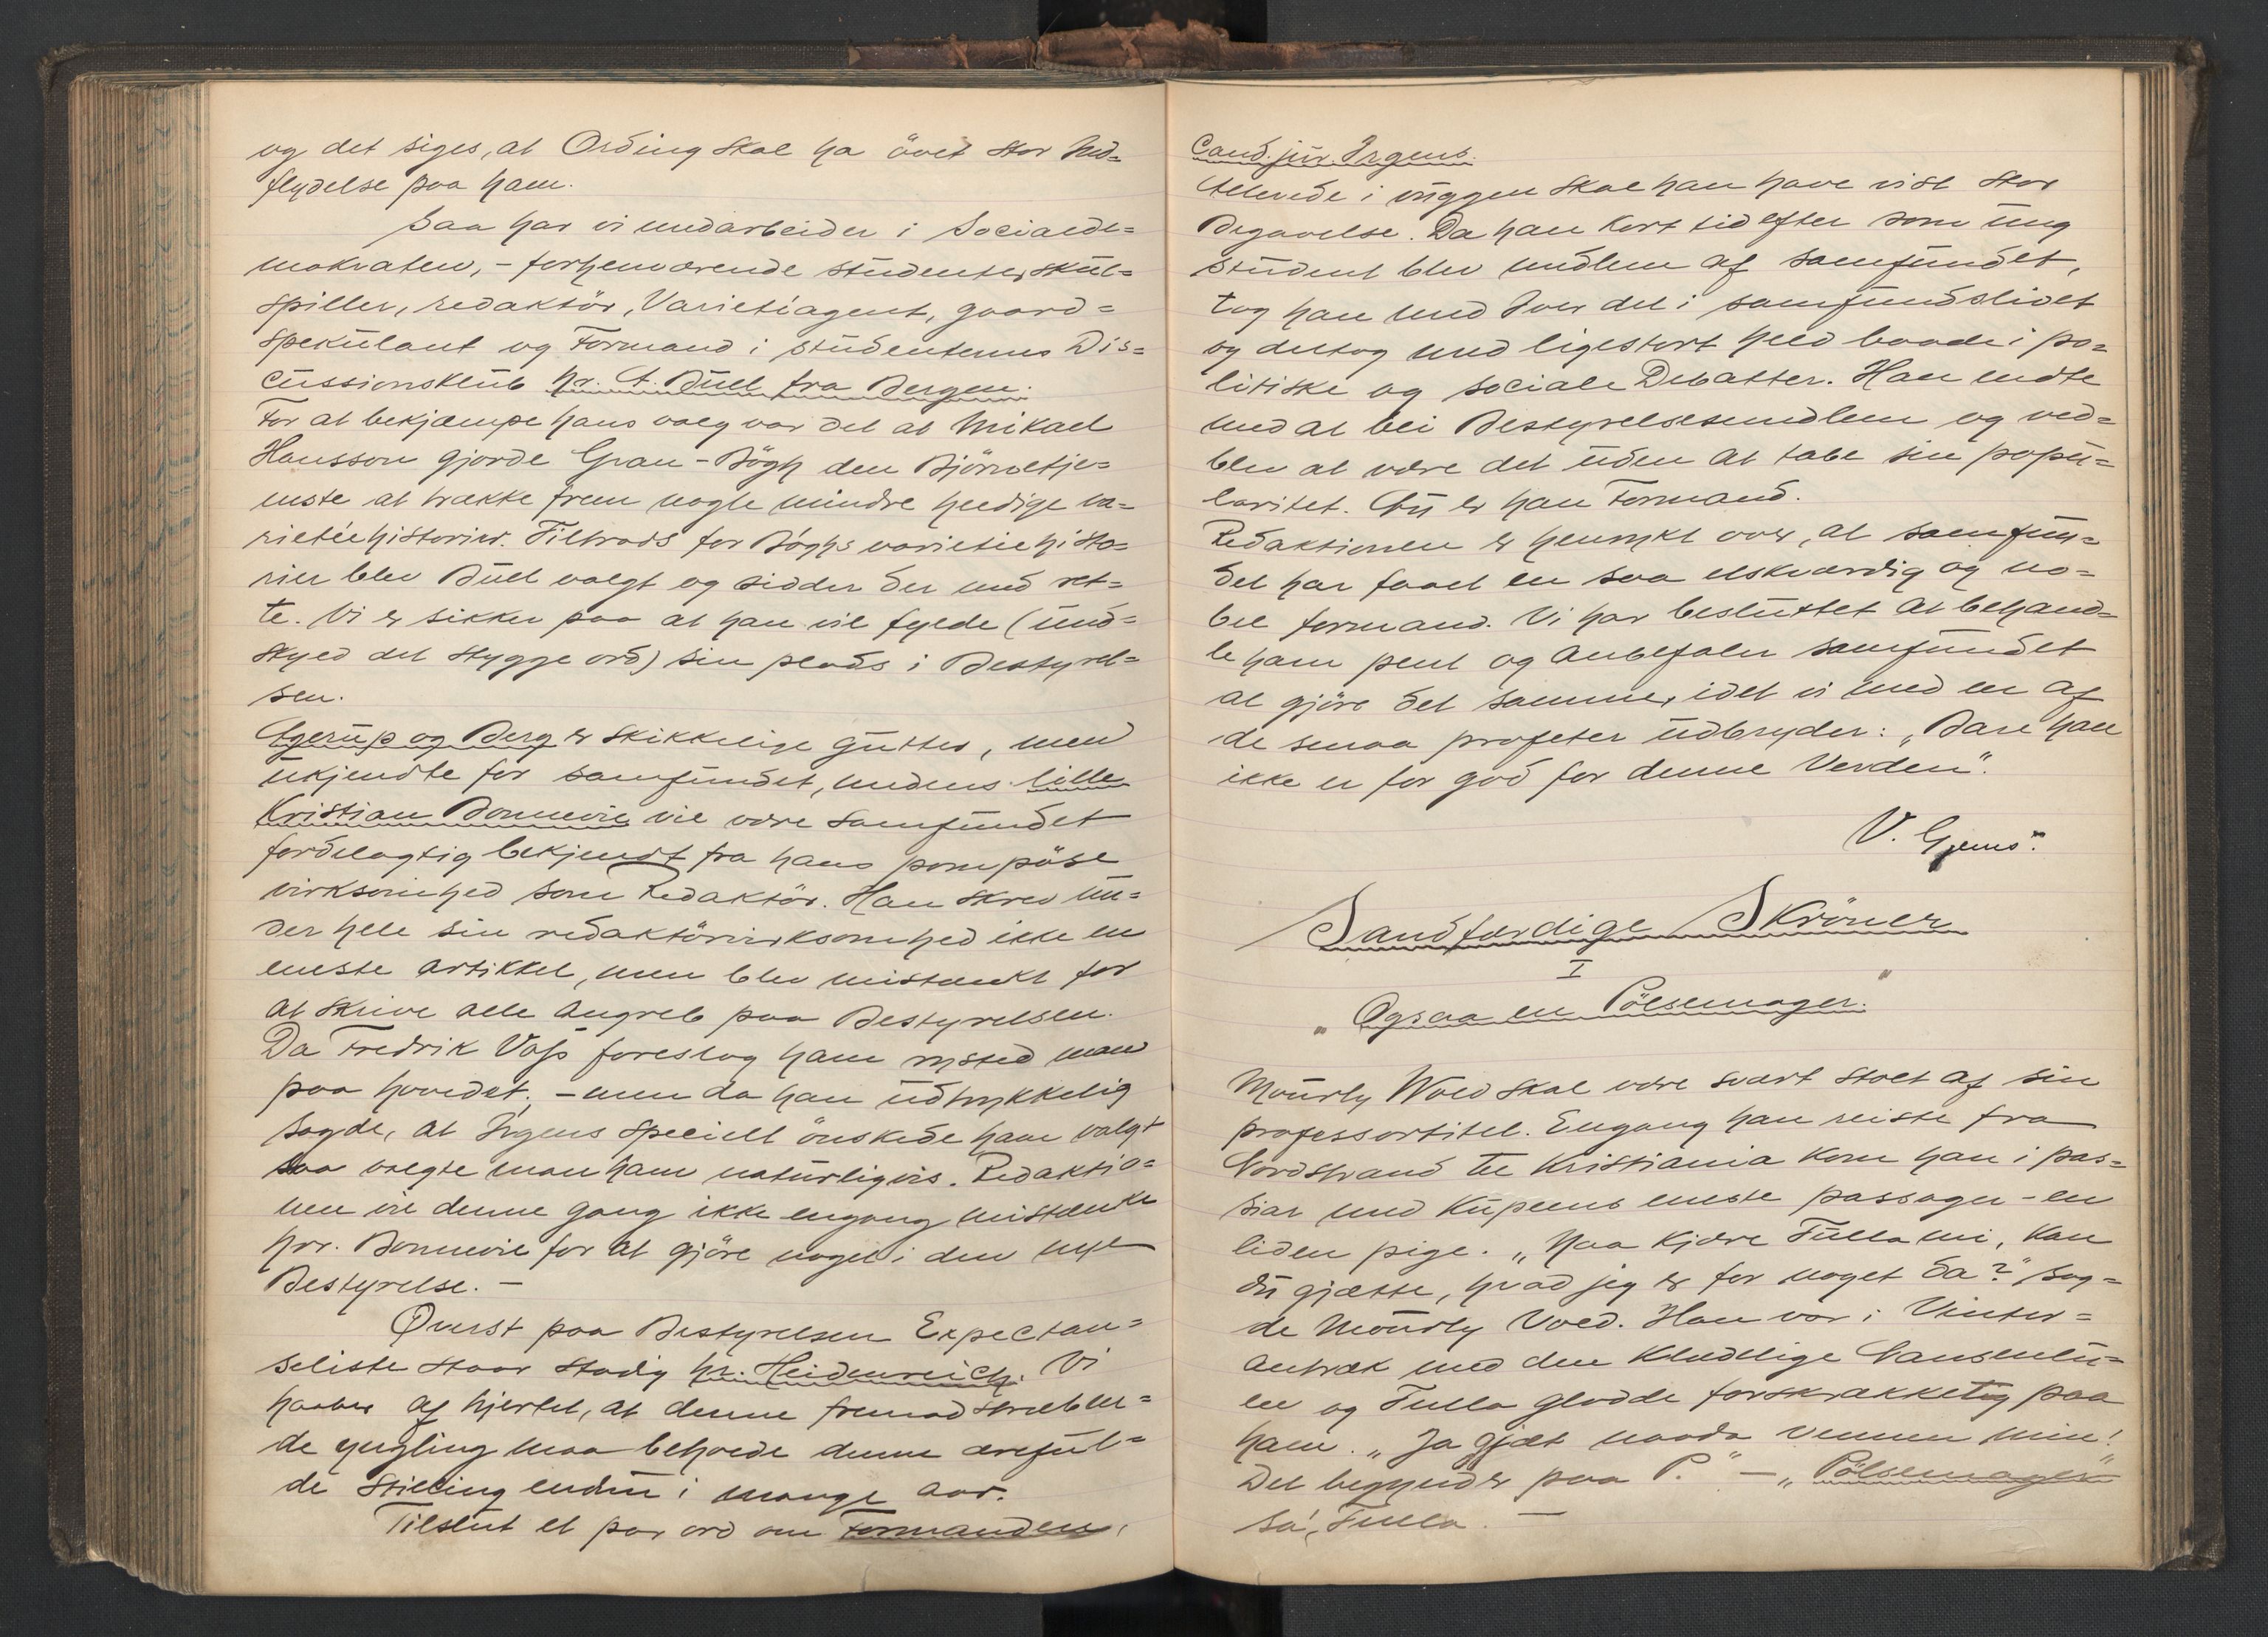 og det siges, at Ording skal ha övet stor Ind=
flydelse paa ham.
Saa har vi medarbeider i Sociálde=
mokraten, - forhenværende studenter, skue=
spiller, redaktör, Varietéagent, gaard=
spekulant og Formand i studenternes Dis=
cussionsklub hr. A. Buel fra Bergen.
For at bekjæmpe hans valg var det at Mikael
Hansson gjorde Gran-Bögh den Björnetje=
neste at trække frem nogle mindre heldige va=
rietéehistorier. Tiltrods for Böghs varietéehisto=
rier blev Buel valgt og sidder der med ret=
te. Vi er sikker paa at han vil fylde (und=
skyld det stygge ord) sin plads i Bestyrel=
sen.
Agerup og Berg er skikkelige gutter, men
ukjendte for samfundet, medens lille
Kristian Bonnevie vil være samfundet
fordelagtig bekjendt fra hans pompöse
virksomhed som Redaktör. Han skrev un=
der hele sin redaktörvirksomhed ikke en
eneste artikkel, men blev mistænkt for
at skrive alle angreb paa Bestyrelsen.
Da Fredrik Voss foreslog ham rysted man
paa hovedet; - men da han udtrykkelig
sagde, at Irgens specielt önskede ham valgt
saa valgte man ham naturligvis. Redaktio=
nen vil denne gang ikke engang mistænke
hrr. Bonnevie for at gjöre noget i den nye
Bestyrelse. -
Øverst paa Bestyrelsen Expectan=
seliste staar stadig hr. Heidenreich. Vi
haaber af hjertet, at denne fremadstræben=
de yngling maa beholde denne æreful=
de stilling endnu i mange aar.
Tilslut et par ord om Formanden,
Cand. jur. Irgens.
Allerede i vuggen skal han have vist stor
Begavelse. Da han kort tid efter som ung
student blev medlem af samfundet,
tog han med Iver del i samfundslivet
og deltog med ligestort held baade i po=
litiske og sociale Debatter. Han endte
med at bli Bestyrelsesmedlem og ved=
blev at være det uden at tabe sin popu=
laritet. Nu er han Formand.
Redaktionen er henrykt over, at samfun=
det har faaet en saa elskværdig og no=
bel formand. Vi har besluttet at behand=
le ham pent og anbefaler samfundet
at gjöre det samme, idet vi med en af
de smaa profeter udbryder: "Bare han
ikke er for god for denne Verden".
V. Gjems.
Sandfærdige Skröner
I
"Ogsaa en Pölsemager."
Mourly Vold skal være svært stolt af sin
professortitel. Engang han reiste fra
Nordstrand til Kristiania kom han i pas=
siar med Kupeens eneste passager - en
liden pige. "Naa kjære Tulla mi, kan
du gjætte, hvad jeg er for noget da?" sag=
de Mourly Vold. Han var i Vinter=
antræk med den klodelige Nansenlu=
en og Tulla glodde forskrækketig paa
ham. "Ja gjæt naada vennen min!
Det begynder paa P." - "Pölsemager"
sa', Tulla. -